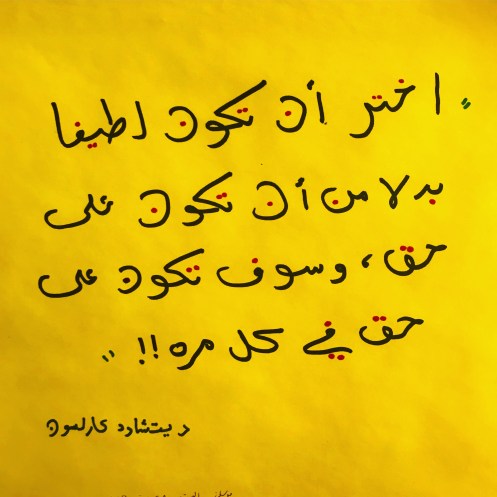 " اختر أن تكون لطيفا
بدلا من أن تكون على
حق، وسوف تكون على
حق في كل مره!! "
ريتشارد كارلسون